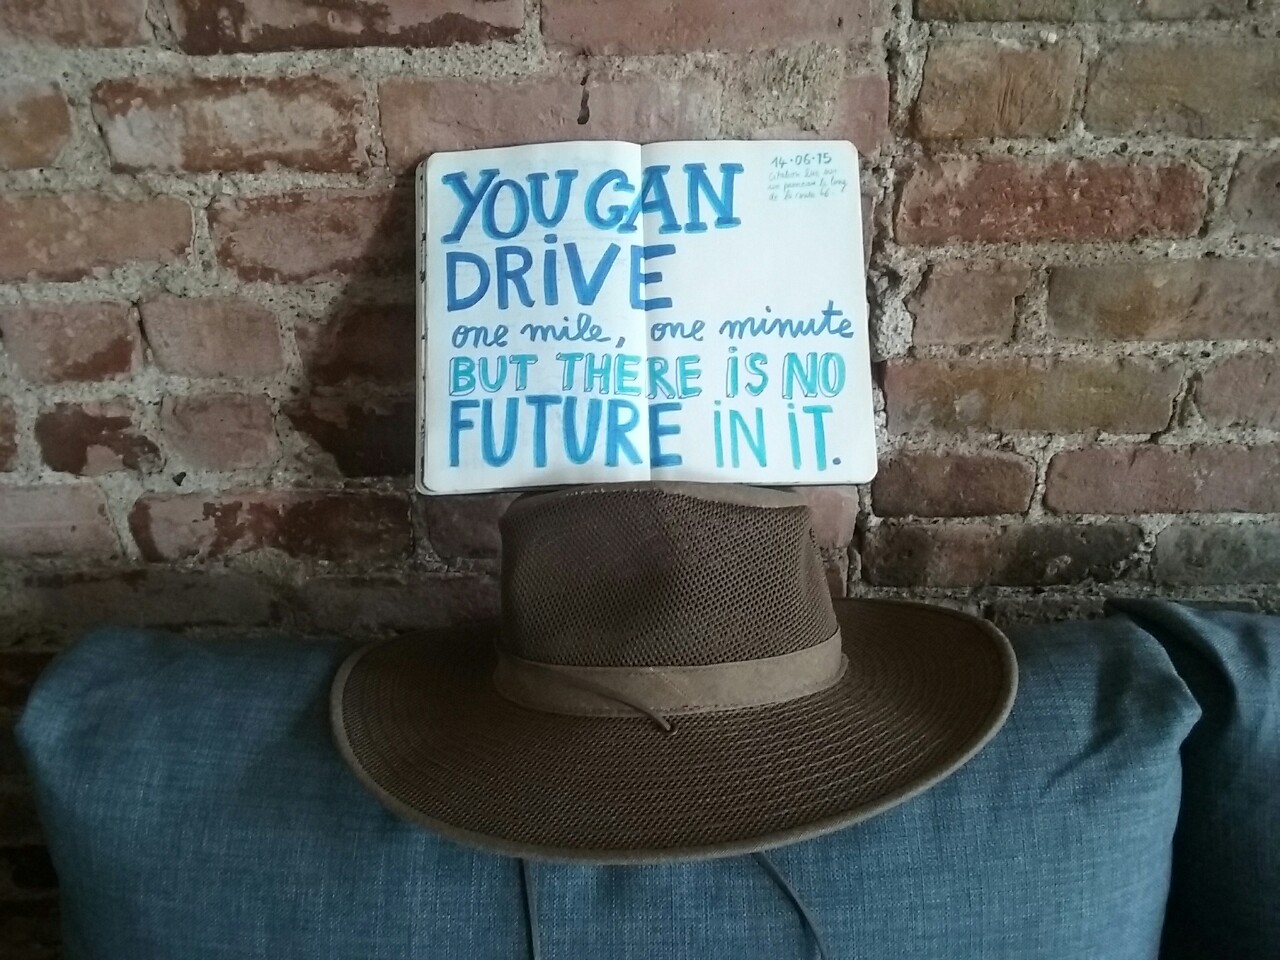 YOU CAN
DRIVE
one mile, one minute
BUT THERE iS NO
FUTURE iN iT.
14·06·15
citation lue sur
un panneau le long
de la route